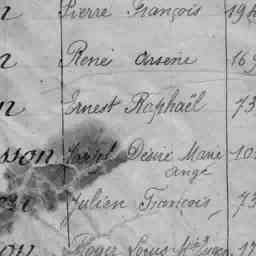 n Pierre François 194
n René Arsène 169
n Ernest Raphaël 73
sson Désiré Marie 10
Ange
Julien François 73
on Roger Louis 17